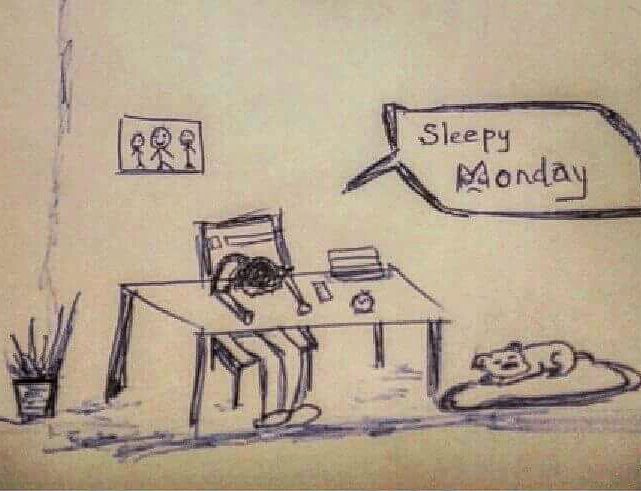 Sleepy
Monday